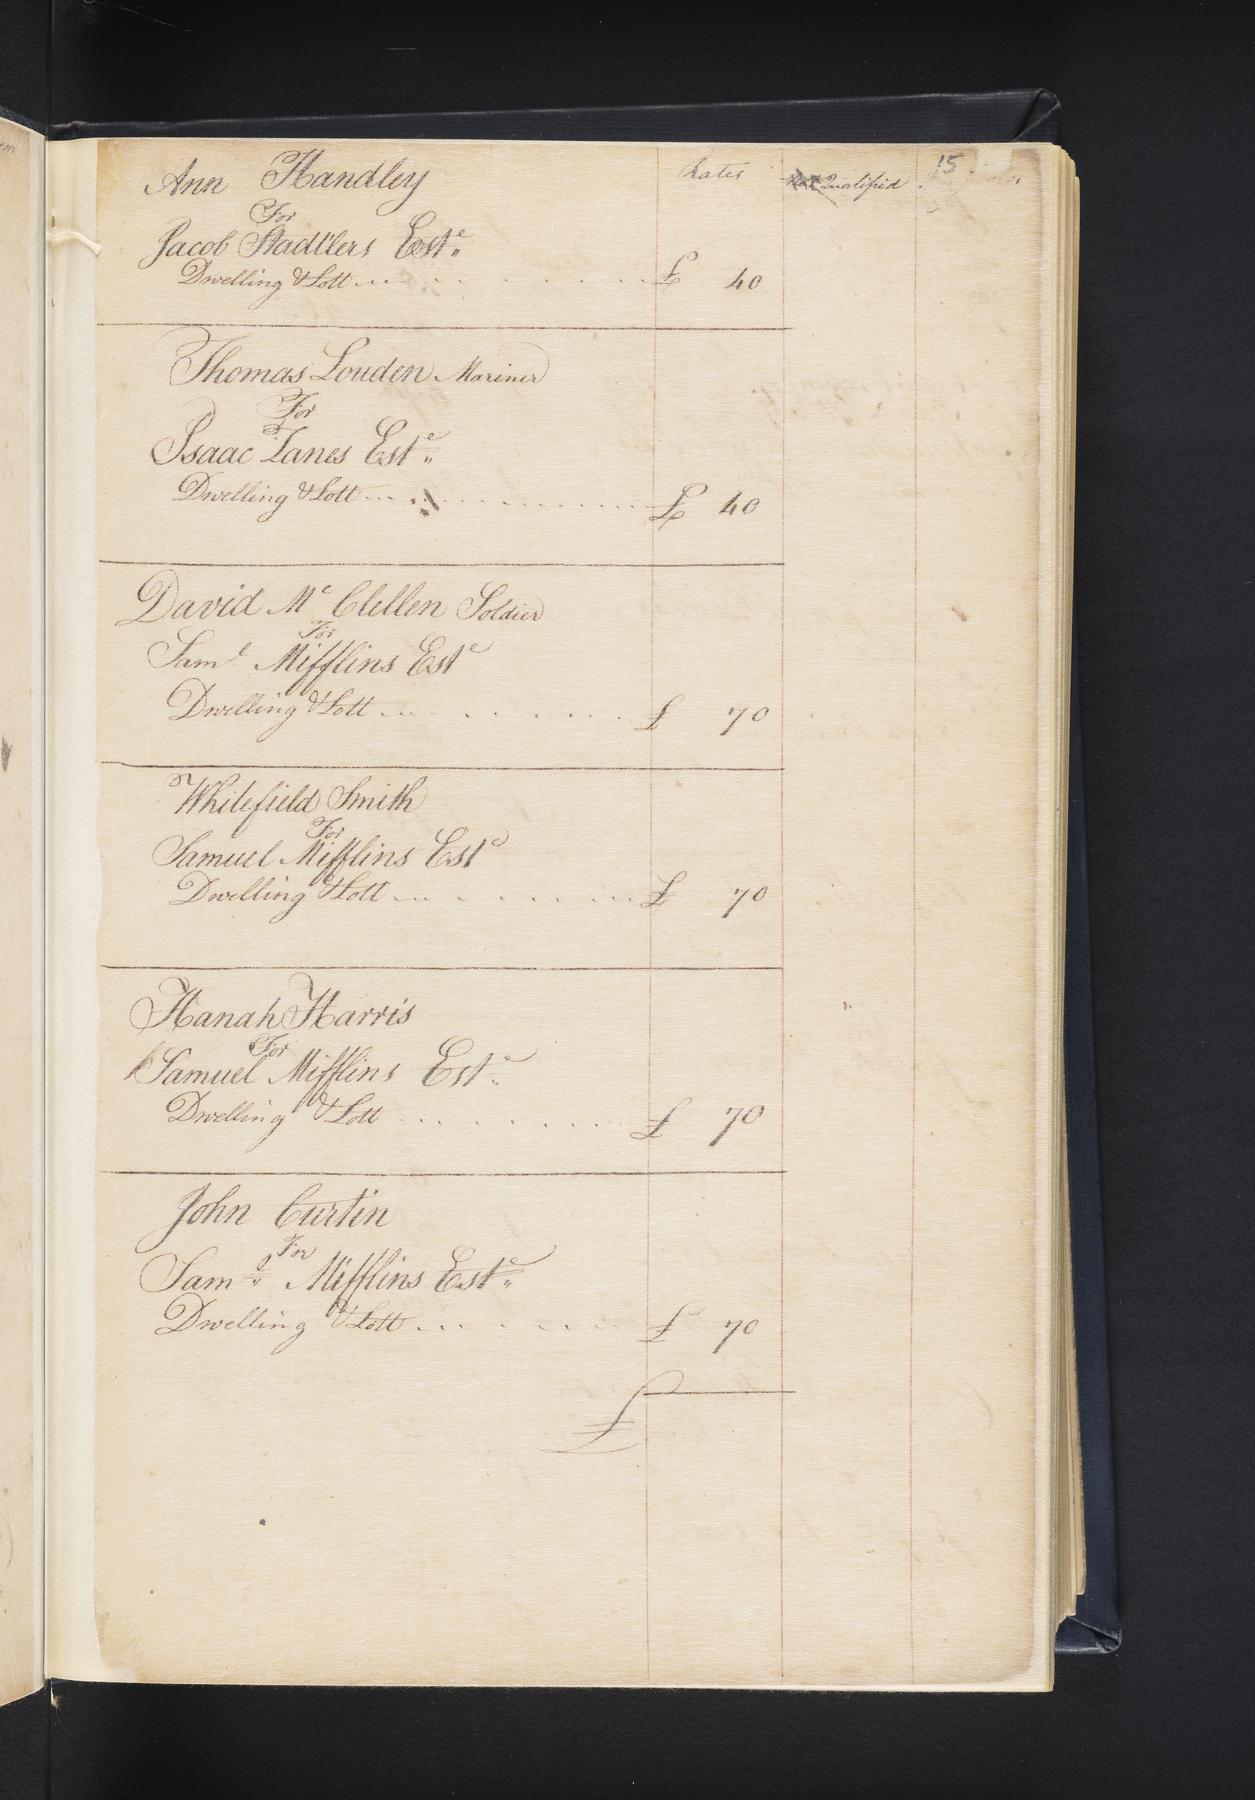 15
Rates
Not Qualified
Ann Handley
For
Jacob Stadtlers Est.e
Dwelling & Lott £ 40
Thomas Louden Mariner
For
Isaac Lanes Est.e
Dwelling & Lott £ 40
David Mc Clellen Soldier
For
Sam.l Mifflins Est.e
Dwelling & Lott £ 70
Whitefield Smith
For
Samuel Mifflins Est.e
Dwelling & Lott £ 70
Hanah Harris
For
Samuel Mifflins Est.e
Dwelling & Lott £ 70
John Curtin
For
Sam.l Mifflins Est.e
Dwelling & Lott £ 70
£